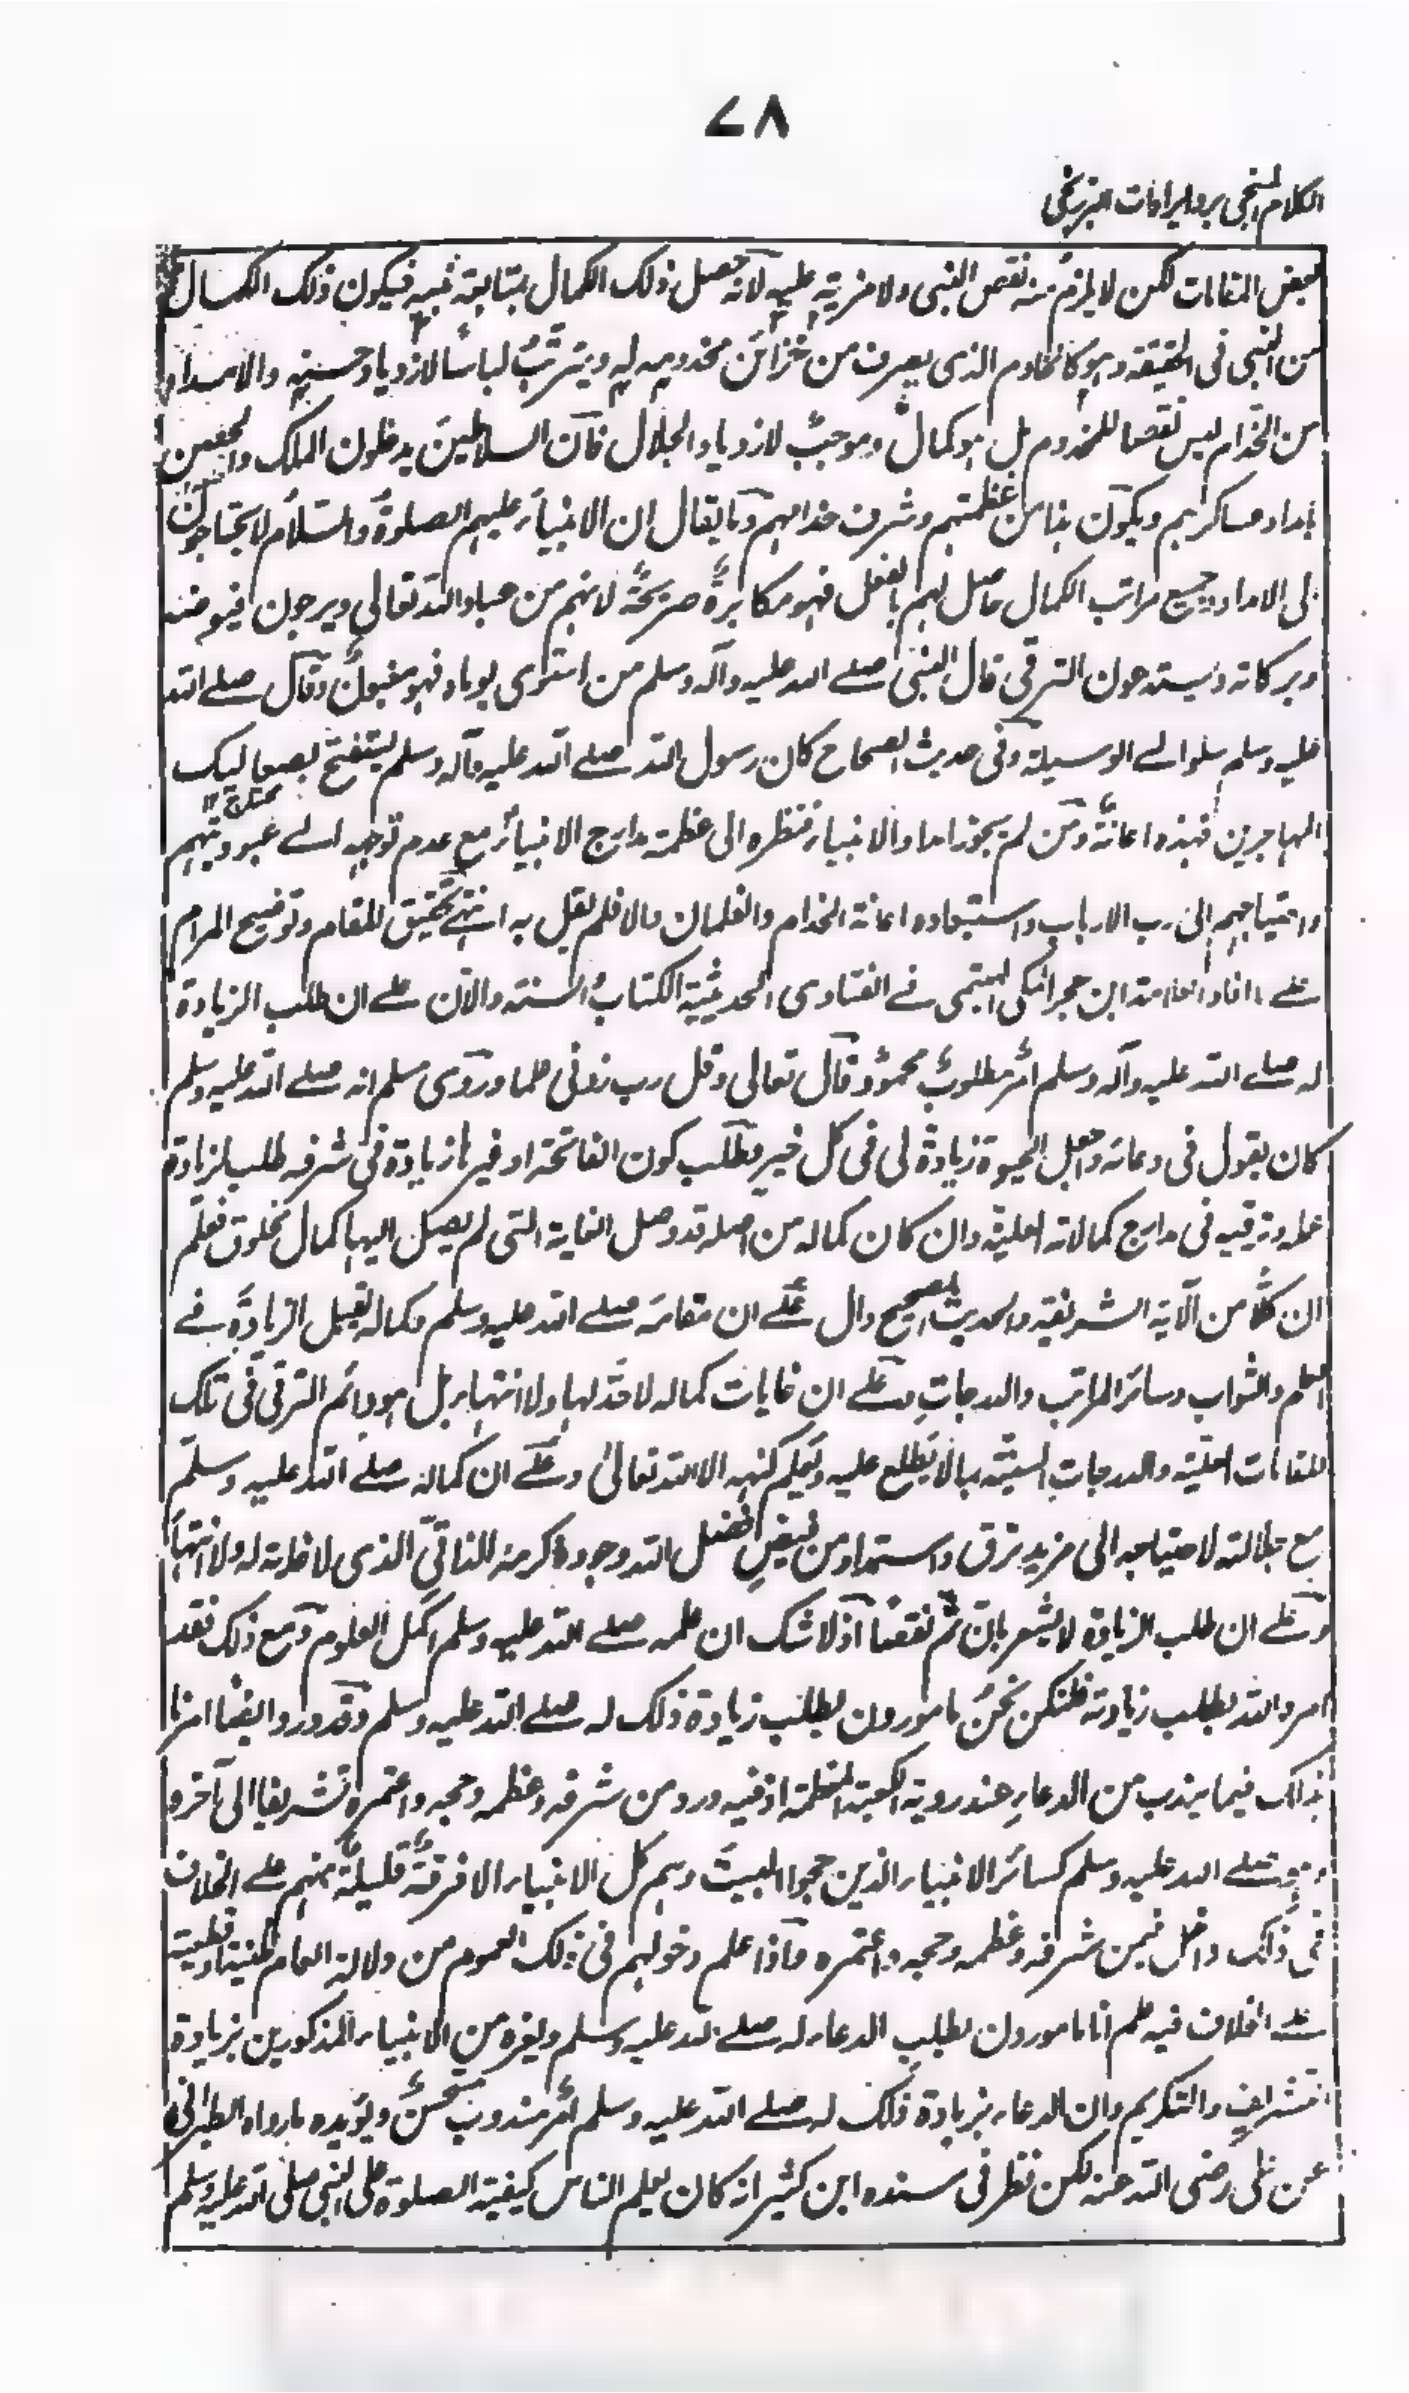 ۷۸
الكلام المنجى برد ايرادات البرزنجى
بعض المقامات لكن لا يلزم منه نقص النبى ولا مزيته عليه لانه حصل ذلك الكمال بمتابعة نبيه فيكون ذلك الكمال
من النبى فى الحقيقة وهو كالخادم الذى يصرف من خزائن مخدومه له ويترتب لباسا لازدياد حسنه والامداد
من الخدام ليس نقصا للمخدوم بل هو كمال وموجب لازدياد الجلال فان السلاطين يدخلون الملك والحصن
بامداد عساكرهم ويكون بناء من عظمتهم وشرف خدامهم وما يقال ان الانبياء عليهم الصلوة والسلام لا يحتاجون
الى الامداد وجميع مراتب الكمال حاصل لهم بالفعل فهو مكابرة صريحة لانهم من عباد الله تعالى ويرجون فيوضه
وبركاته ويستدعون الترقى قال النبى صلے الله عليه وآله وسلم من استوى يوماه فهو مغبون وقال صلے الله
عليه وسلم سلوا لے الوسيلة وفى حديث الصحاح كان رسول الله صلے الله عليه وآله وسلم يستفتح بصعاليك
المهاجرين فهذه اعانة ومن لم يجوز امداد الانبياء فنظره الى عظمة مدارج الانبياء مع عدم توجهه الے عبوديتهم
واحتياجهم الى رب الارباب واستبعاده اعانة الخدام والغلمان والا فلم يقل به انتهے تحقيق للمقام وتوضيح المرام
علے ما افاد العلامة ابن حجر المكى الهيتمى فے الفتاوى الحديثية الكتاب والسنة دالان علے ان طلب الزيادة
له صلے الله عليه وآله وسلم امر مطلوب محمود قال تعالى وقل رب زدنى علما وروى مسلم انه صلے الله عليه وسلم
كان يقول فى دعائه واجعل الحيوة زيادة لى فى كل خير وطلب كون الفاتحة او غيرها زيادة فى شرفه طلب لزيادة
علمه وترقيه فى مدارج كمالاته العلية وان كان كماله من اصله قد وصل الغاية التى لم يصل اليها كمال مخلوق فعلم
ان كلا من الآية الشريفة والحديث الصحيح دال علے ان مقامه صلے الله عليه وسلم وكماله يقبل الزيادة فے
العلم والثواب وسائر المراتب والدرجات وعلے ان غايات كماله لا حد لها ولا انتهاء بل هو دائم الترقى فى تلك
المقامات العلية والدرجات السنية بما لا يطلع عليه ويعلم كنهه الا الله تعالى وعلے ان كماله صلے الله عليه وسلم
مع جلالته لاحتياجه الى مزيد ترق واستمداد من فيض فضل الله وجوده وكرمه الذى لا غاية له ولا انتهاء
وعلے ان طلب الزيادة لا يشعر بان ثم نقصا اذ لا شك ان علمه صلے الله عليه وسلم اكمل العلوم ومع ذلك فقد
امره الله بطلب زيادته فلنكن نحن مامورون بطلب زيادة ذلك له صلے الله عليه وسلم وقد ورد ايضا امرنا
بذلك فيما يندب من الدعاء عند روية الكعبة المعظمة اذ فيه وزد من شرفه وعظمه وحجه واعتمره تشريفا الى آخره
وهو صلے الله عليه وسلم كسائر الانبياء الذين حجوا البيت وهم كل الانبياء الا فرقة قليلة منهم علے الخلاف
فى ذلك داخل فيمن شرفه وعظمه وحجه واعتمره واذا علم دخولهم فى ذلك العموم من دلالة العام ظنية او قطعية
علے الخلاف فيه علم انا مامورون بطلب الدعاء له صلے الله عليه وسلم ولغيره من الانبياء المذكورين بزيادة
التشريف والتكريم وان الدعاء بزيادة ذلك له صلے الله عليه وسلم امر مندوب مستحسن ويؤيده ما رواه الطبرانى
عن على رضى الله عنه لكن نظر فى سنده ابن كثير انه كان يعلم الناس كيفية الصلوة على النبى صلى الله عليه وسلم